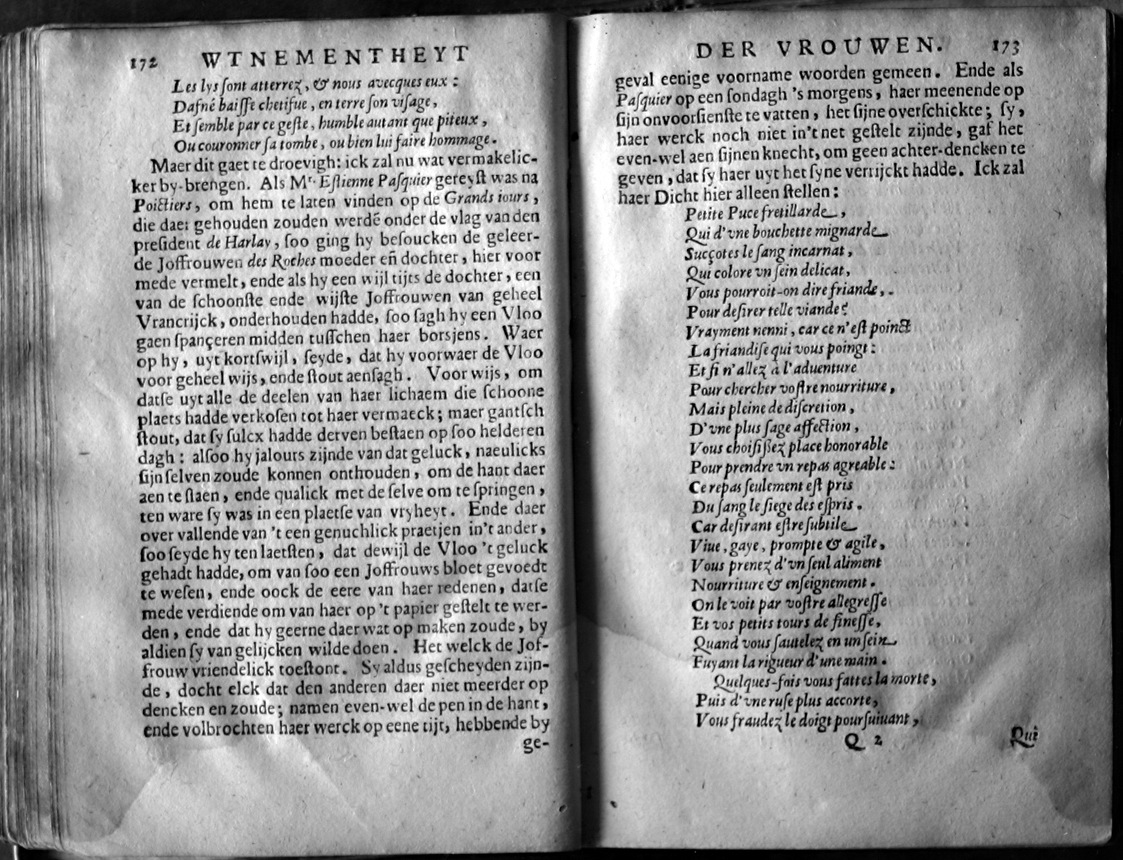 172 WTNEMENTHEYT
Les lys ſont atterrez, & nous avecques eux :
Dafné baiſſe chetifue, en terre ſon viſage,
Et ſemble par ce geſte, humble autant que piteux,
Ou couronner ſa tombe, ou bien lui faire hommage.
Maer dit gaet te droevigh: ick zal nu wat vermakelic-
ker by-brengen. Als Mr. Eſtienne Paſquier gereyſt was na
Poictiers, om hem te laten vinden op de Grands iours,
die daer gehouden zouden werdē onder de vlag van den
preſident de Harlay, ſoo ging hy beſoucken de geleer-
de Joffrouwen des Roches moeder eñ dochter, hier voor
mede vermelt, ende als hy een wijl tijts de dochter, een
van de ſchoonſte ende wijſte Joffrouwen van geheel
Vrancrijck, onderhouden hadde, ſoo ſagh hy een Vloo
gaen ſpançeren midden tuſſchen haer borsjens. Waer
op hy, uyt kortſwijl, ſeyde, dat hy voorwaer de Vloo
voor geheel wijs, ende ſtout aenſagh. Voor wijs, om
datſe uyt alle de deelen van haer lichaem die ſchoone
plaets hadde verkoſen tot haer vermaeck; maer gantſch
ſtout, dat ſy ſulcx hadde derven beſtaen op ſoo helderen
dagh: alſoo hy jalours zijnde van dat geluck, naeulicks
ſijn ſelven zoude konnen onthouden, om de hant daer
aen te ſlaen, ende qualick met de ſelve om te ſpringen,
ten ware ſy was in een plaetſe van vryheyt. Ende daer
over vallende van 't een genuchlick praetjen in't ander,
ſoo ſeyde hy ten laetſten, dat dewijl de Vloo 't geluck
gehadt hadde, om van ſoo een Joffrouws bloet gevoedt
te weſen, ende oock de eere van haer redenen, datſe
mede verdiende om van haer op 't papier geſtelt te wer-
den, ende dat hy geerne daer wat op maken zoude, by
aldien ſy van gelijcken wilde doen. Het welck de Jof-
frouw vriendelick toeſtont. Sy aldus geſcheyden zijn-
de, docht elck dat den anderen daer niet meerder op
dencken en zoude; namen even-wel de pen in de hant,
ende volbrochten haer werck op eene tijt, hebbende by
ge-
DER VROUWEN. 173
geval eenige voorname woorden gemeen. Ende als
Paſquier op een ſondagh 's morgens, haer meenende op
ſijn onvoorſienſte te vatten, het ſijne overſchickte; ſy,
haer werck noch niet in't net geſtelt zijnde, gaf het
even-wel aen ſijnen knecht, om geen achter-dencken te
geven, dat ſy haer uyt het ſyne verrijckt hadde. Ick zal
haer Dicht hier alleen ſtellen:
Petite Puce fretillarde,
Qui d'vne bouchette mignarde
Succotes le ſang incarnat,
Qui colore vn ſein delicat,
Vous pourroit-on dire friande,
Pour deſirer telle viande?
Vrayment nenni, car ce n'eſt poinct
La friandiſe qui vous poingt:
Et ſi n'allez à l'aduenture
Pour chercher voſtre nourriture,
Mais pleine de diſcretion,
D'vne plus ſage affection,
Vous choiſiſſez place honorable
Pour prendre vn repas agreable:
Ce repas ſeulement eſt pris
Du ſang le ſiege des eſpris.
Car deſirant eſtre ſubtile
Viue, gaye, prompte & agile,
Vous prenez d'vn ſeul aliment
Nourriture & enſeignement.
On le voit par voſtre allegreſſe
Et vos petits tours de fineſſe,
Quand vous ſautelez en un ſein
Fuyant la rigueur d'une main.
Quelques-fois vous faites la morte,
Puis d'vne ruſe plus accorte,
Vous fraudez le doigt pourſuiuant,
Q 2 Qui